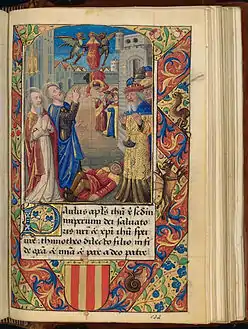 Paulus apls ihu x̄ sedm
imperium dei saluato
ris nri & xpi ihu spei
nre: thimotheo dilecto filio in fi
de gra & mia & pax a deo patre